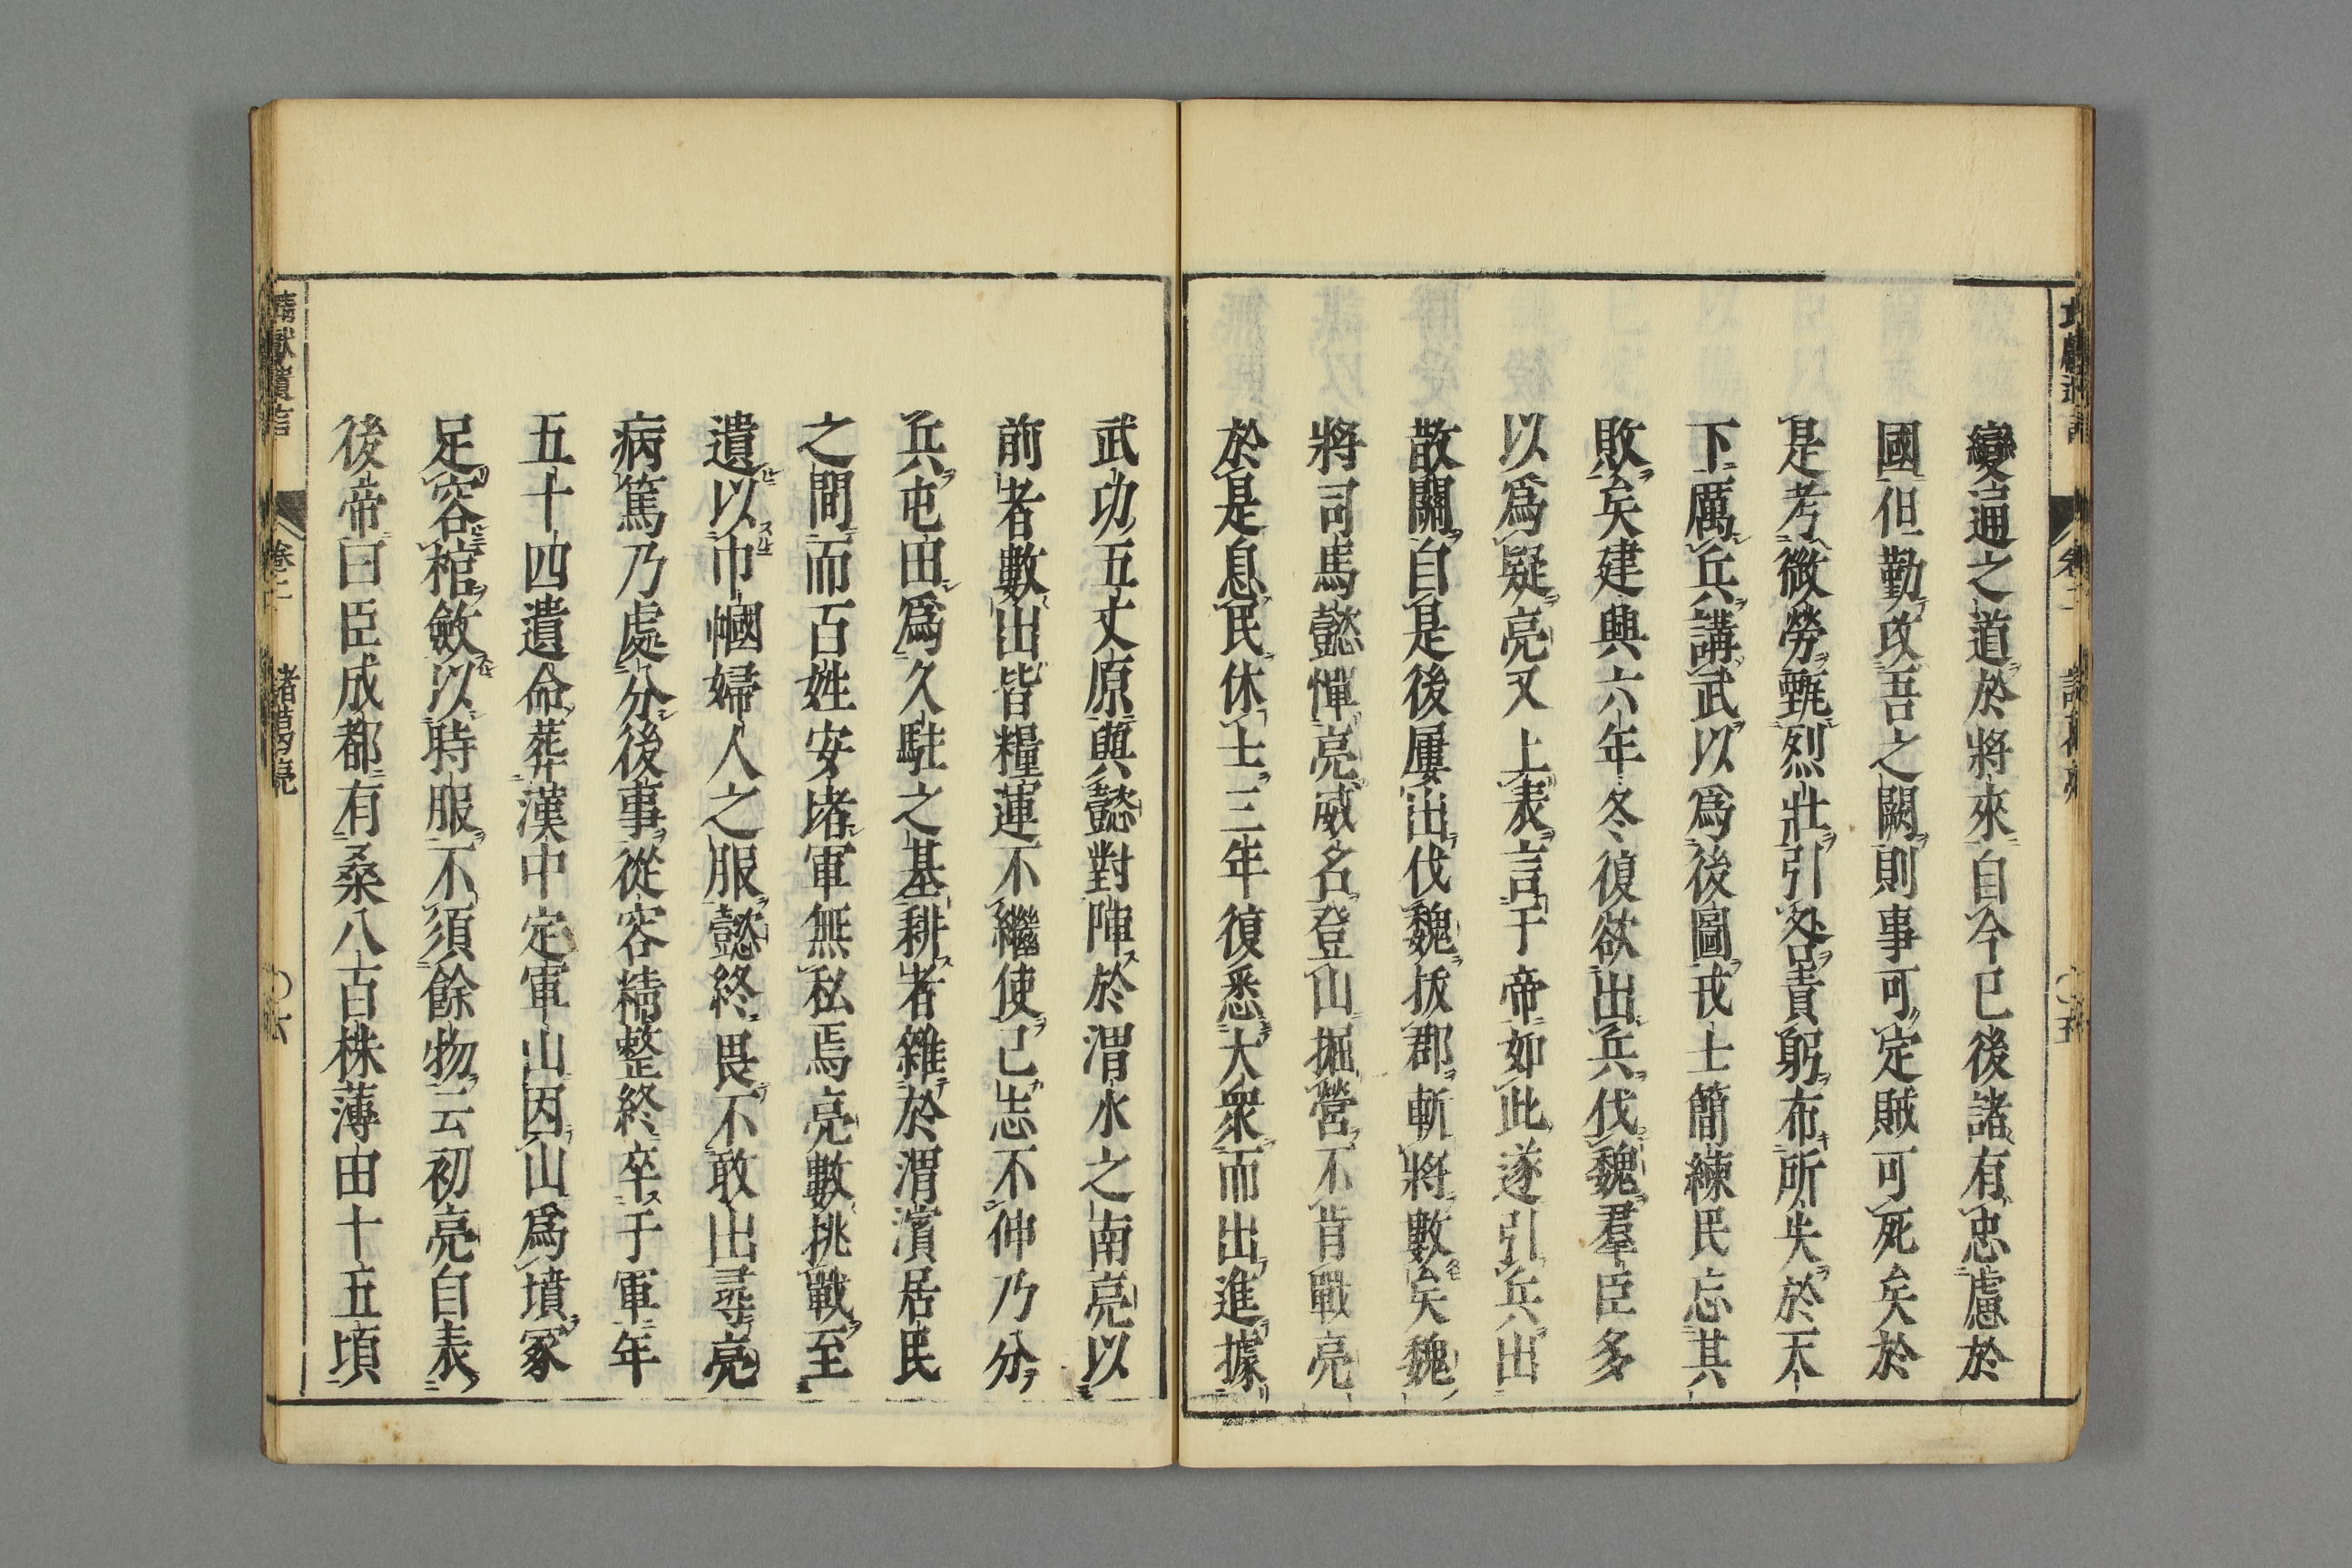 變通之道於將來自今已後諸有忠慮於
國但勤攻吾之闕則事可定賊可死矣於
是考微勞甄烈壯引咎責躬布所失於天
下厲兵講武以爲後圖戎士簡練民忘其
敗矣建興六年冬復欲出兵伐魏羣臣多
以爲疑亮又上表言于帝如此遂引兵出
散關自是後屢出伐魏拔郡斬將數矣魏
將司馬懿憚亮威名登山掘營不肯戰亮
於是息民休士三年復悉大衆而出進據
武功五丈原與懿對陣於渭水之南亮以
前者數出皆糧運不繼使己志不伸乃分
兵屯田爲久駐之基耕者雜於渭濱居民
之間而百姓安堵軍無私焉亮數挑戰至
遺以巾幗婦人之服懿終畏不敢出尋亮
病篤乃處分後事從容精整終卒于軍年
五十四遺命葬漢中定軍山因山爲墳冢
足容棺斂以時服不須餘物云初亮自表
後帝曰臣成都有桑八百株薄田十五頃
靖獻遺言 卷二 諸葛亮 〇六